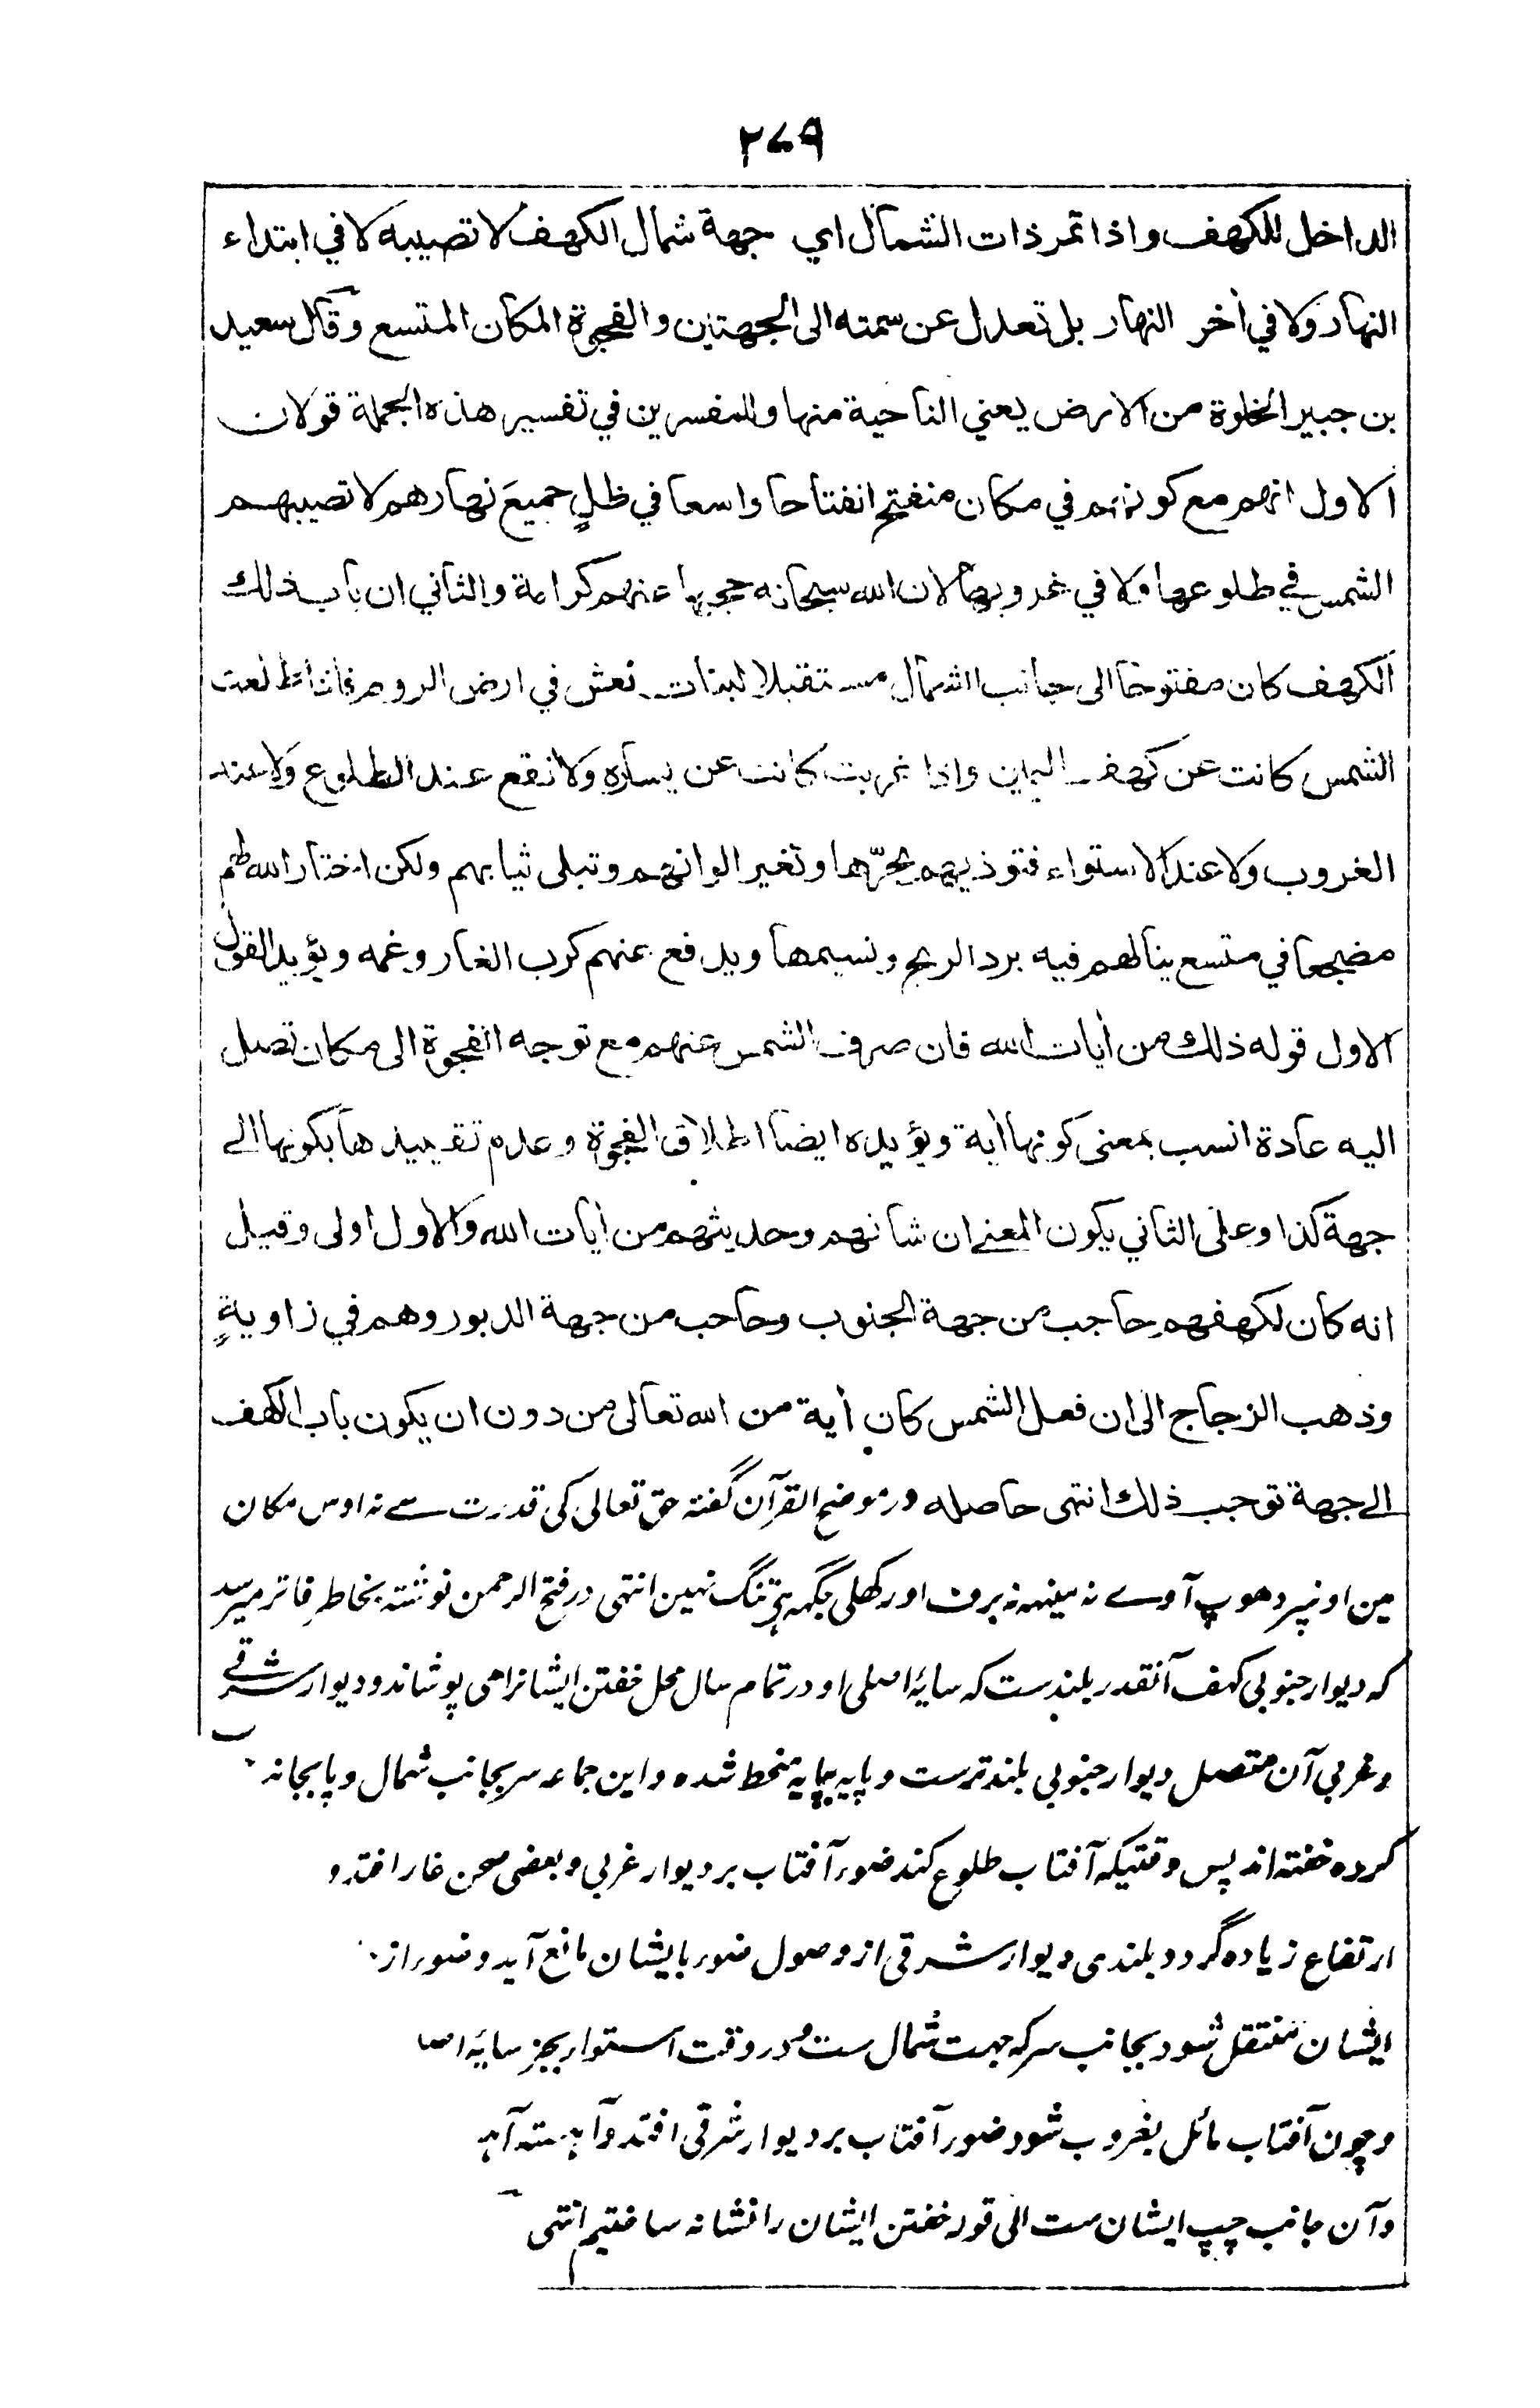 ۲۷۹
الداخل للكهف واذا تمر ذات الشمال اي جهة شمال الكهف لا تصيبه لا في ابتداء
النهار ولا في أخر النهار بل تعدل عن سمته الى الجهتين والفجوة المكان المتسع وقال سعيد
بن جبير الخلوة من الارض يعني الناحية منها وللمفسرين في تفسير هذه الجملة قولان
الاول انهم مع كونهم في مكان منفتح انفتاحا واسعا في ظلٍ جميعَ نهارهم لا تصيبهم
الشمس في طلوعها ولا في غروبها لان الله سبحانه حجبها عنهم كرامة والثاني ان باب ذلك
الكهف كان مفتوحا الى جانب الشمال مستقبلا لبنات نعش في ارض الروم فاذا طلعت
الشمس كانت عن كهف اليمين واذا غربت كانت عن يساره ولا تقع عند الطلوع ولا عند
الغروب ولا عند الاستواء فتوذيهم بحرّها وتغير الوانهم وتبلى ثيابهم ولكن اختار الله لهم
مضجعا في متسع ينالهم فيه برد الريح ونسيمها ويدفع عنهم كرب الغار وغمه ويؤيد القول
الاول قوله ذلك من أيات الله فان صرف الشمس عنهم مع توجه الفجوة الى مكان تصل
اليه عادة انسب بمعنى كونها أية ويؤيده ايضا اطلاق الفجوة وعدم تقييدها بكونها الے
جهة كذا وعلى الثاني يكون المعنے ان شانهم وحديثهم من أيات الله والاول اولى وقيل
انه كان لكهفهم حاجب من جهة الجنوب وحاجب من جهة الدبور وهم في زاويةٍ
وذهب الزجاج الى ان فعل الشمس كان أية من الله تعالى من دون ان يكون باب الكهف
الے جهة توجب ذلك انتهى حاصله ودر موضح القرآن گفته حق تعالی کی قدرت سے نہ اوس مکان
مین اونپر دھوپ آوے نہ مینہہ نہ برف اور کھلی جگہہ ہے تنگ نہین انتہی در فتح الرحمن نوشتہ بخاطر فاتر میرسد
کہ دیوار جنوبی کہف آنقدر بلندست کہ سایۂ اصلی او در تمام سال محل خفتن ایشانرا می پوشاند و دیوار شرقے
وغربی آن متصل دیوار جنوبی بلندترست و پایہ بپایہ منحط شدہ و این جماعہ سر بجانب شمال و پا بجانـ
کردہ خفتہ اند پس وقتیکہ آفتاب طلوع کند ضوء آفتاب بر دیوار غربی و بعضی صحن غار افتد و
ارتفاع زیادہ گردد بلندی دیوار شرقی از وصول ضوء بایشان مانع آید و ضوء از
ایشان منتقل شود بجانب سر کہ جہت شمال ست و در وقت استوا بجز سایۂ اصلـ
و چون آفتاب مائل بغروب شود ضوء آفتاب بر دیوار شرقی افتد و آہستہ آہـ
و آن جانب چپ ایشان ست الی قولہ خفتن ایشان را نشانہ ساختیم انتہی